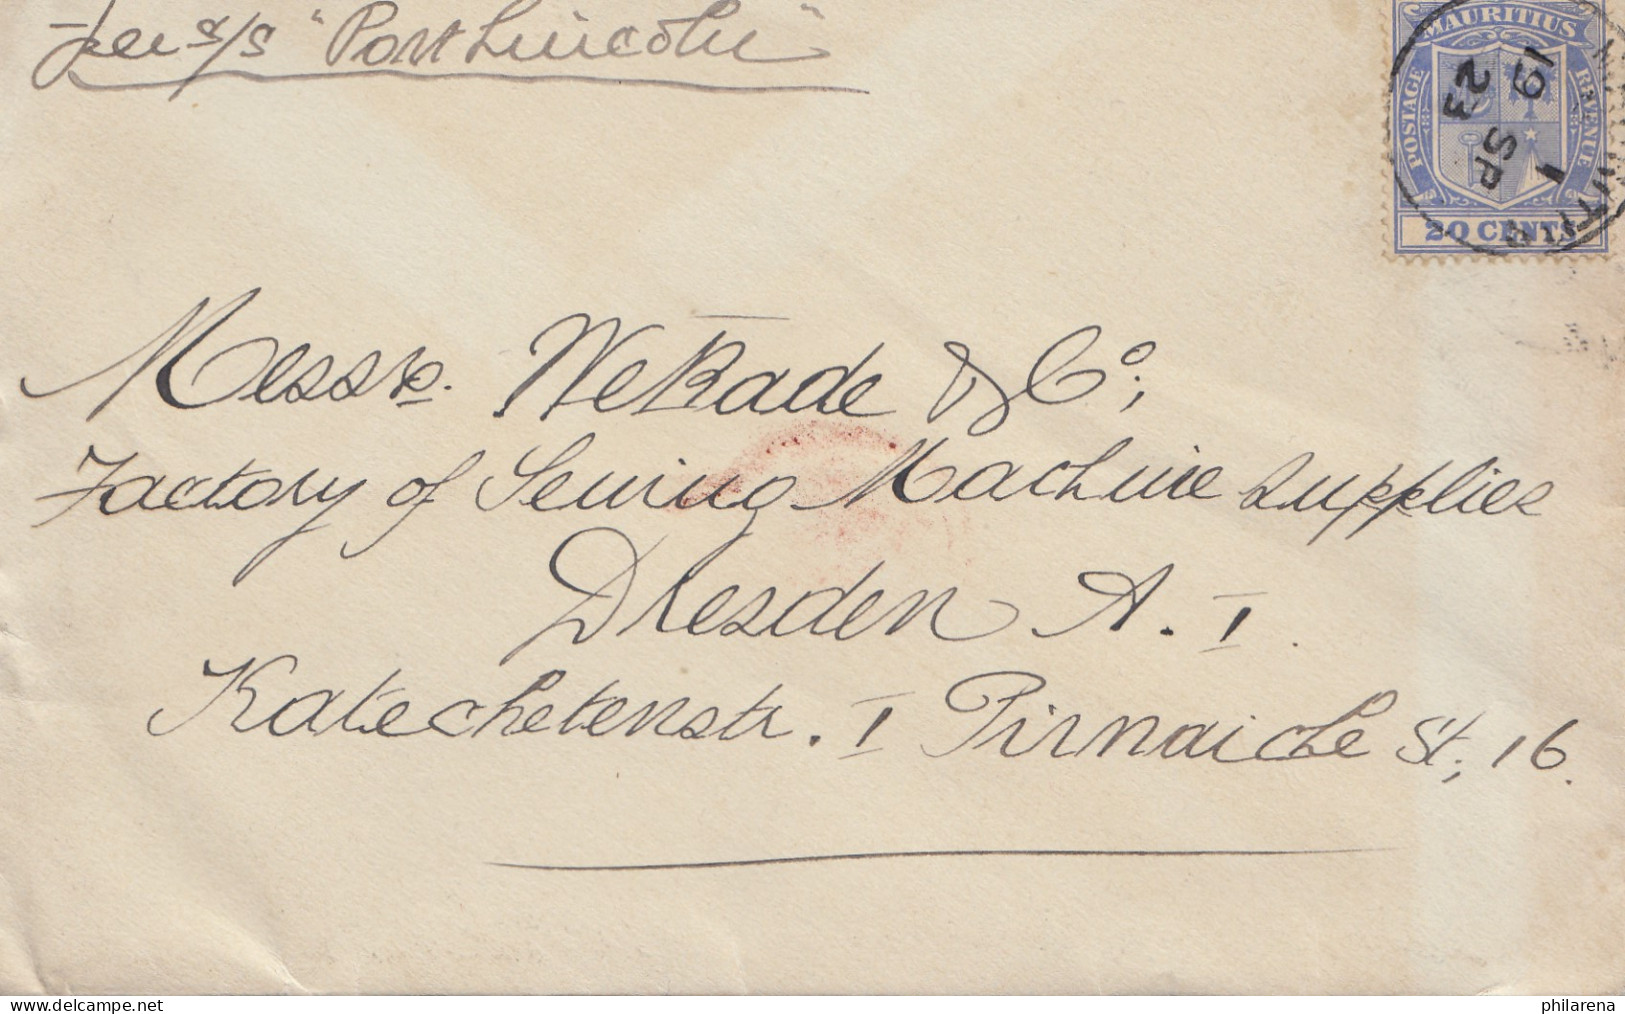 Per s/s "Port Lincoln"
MAURITIUS
POSTAGE
REVENUE
20 CENTS
1
SP
19
23
Messrs. WeKade & Co.,
Factory of Sewing Machine Supplies
Dresden A. I.
Katechetenstr. I Pirnaiche St, 16.
philarena
delcampe.net